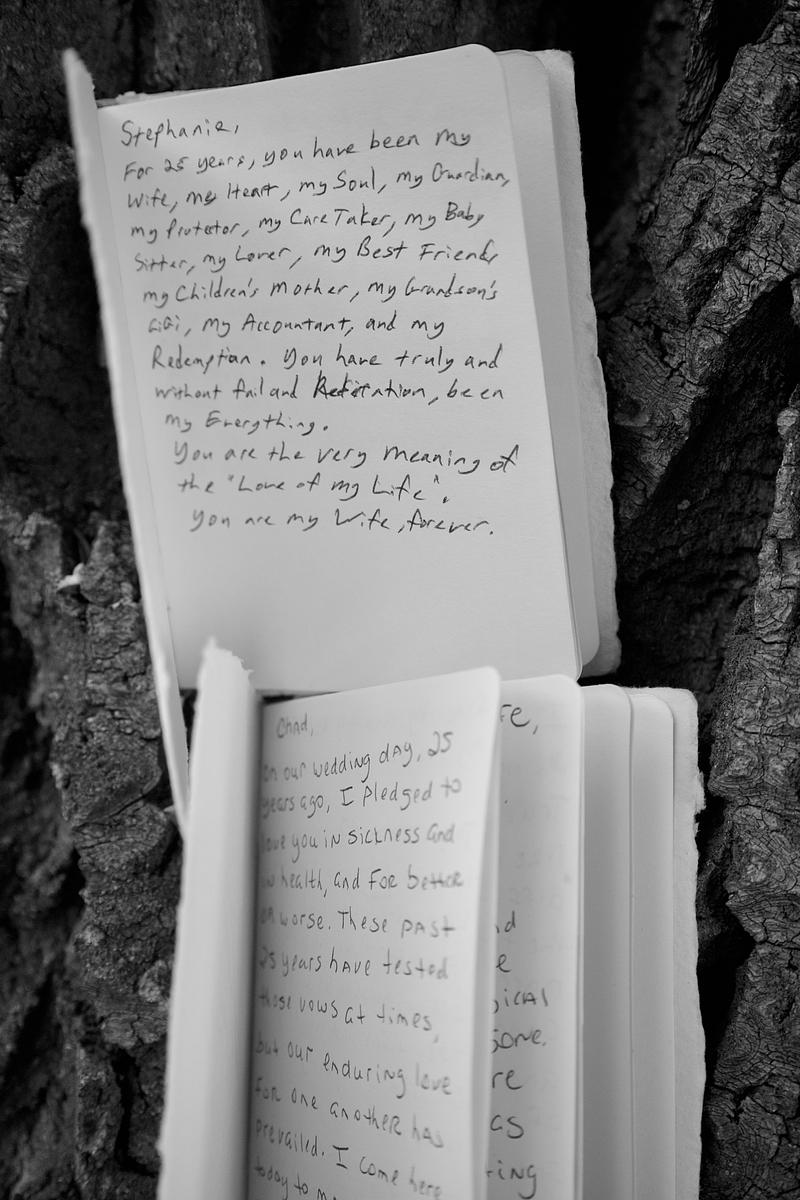 Stephanie,
For 25 years, you have been my
Wife, my Heart, my Soul, my Guardian,
my Protector, my Care Taker, my Baby
Sitter, my Lover, my Best Friend,
my Children's Mother, my Grandson's
GiGi, my Accountant, and my
Redemption. You have truly and
without fail and, been
my Everything.
You are the very meaning of
the "Love of my Life".
You are my Wife, forever.
Chad,
on our wedding day, 25
years ago, I Pledged to
love you in sickness and
in health, and For better
or worse. These past
25 years have tested
those vows at times,
but our enduring love
for one another has
prevailed. I come here
today to